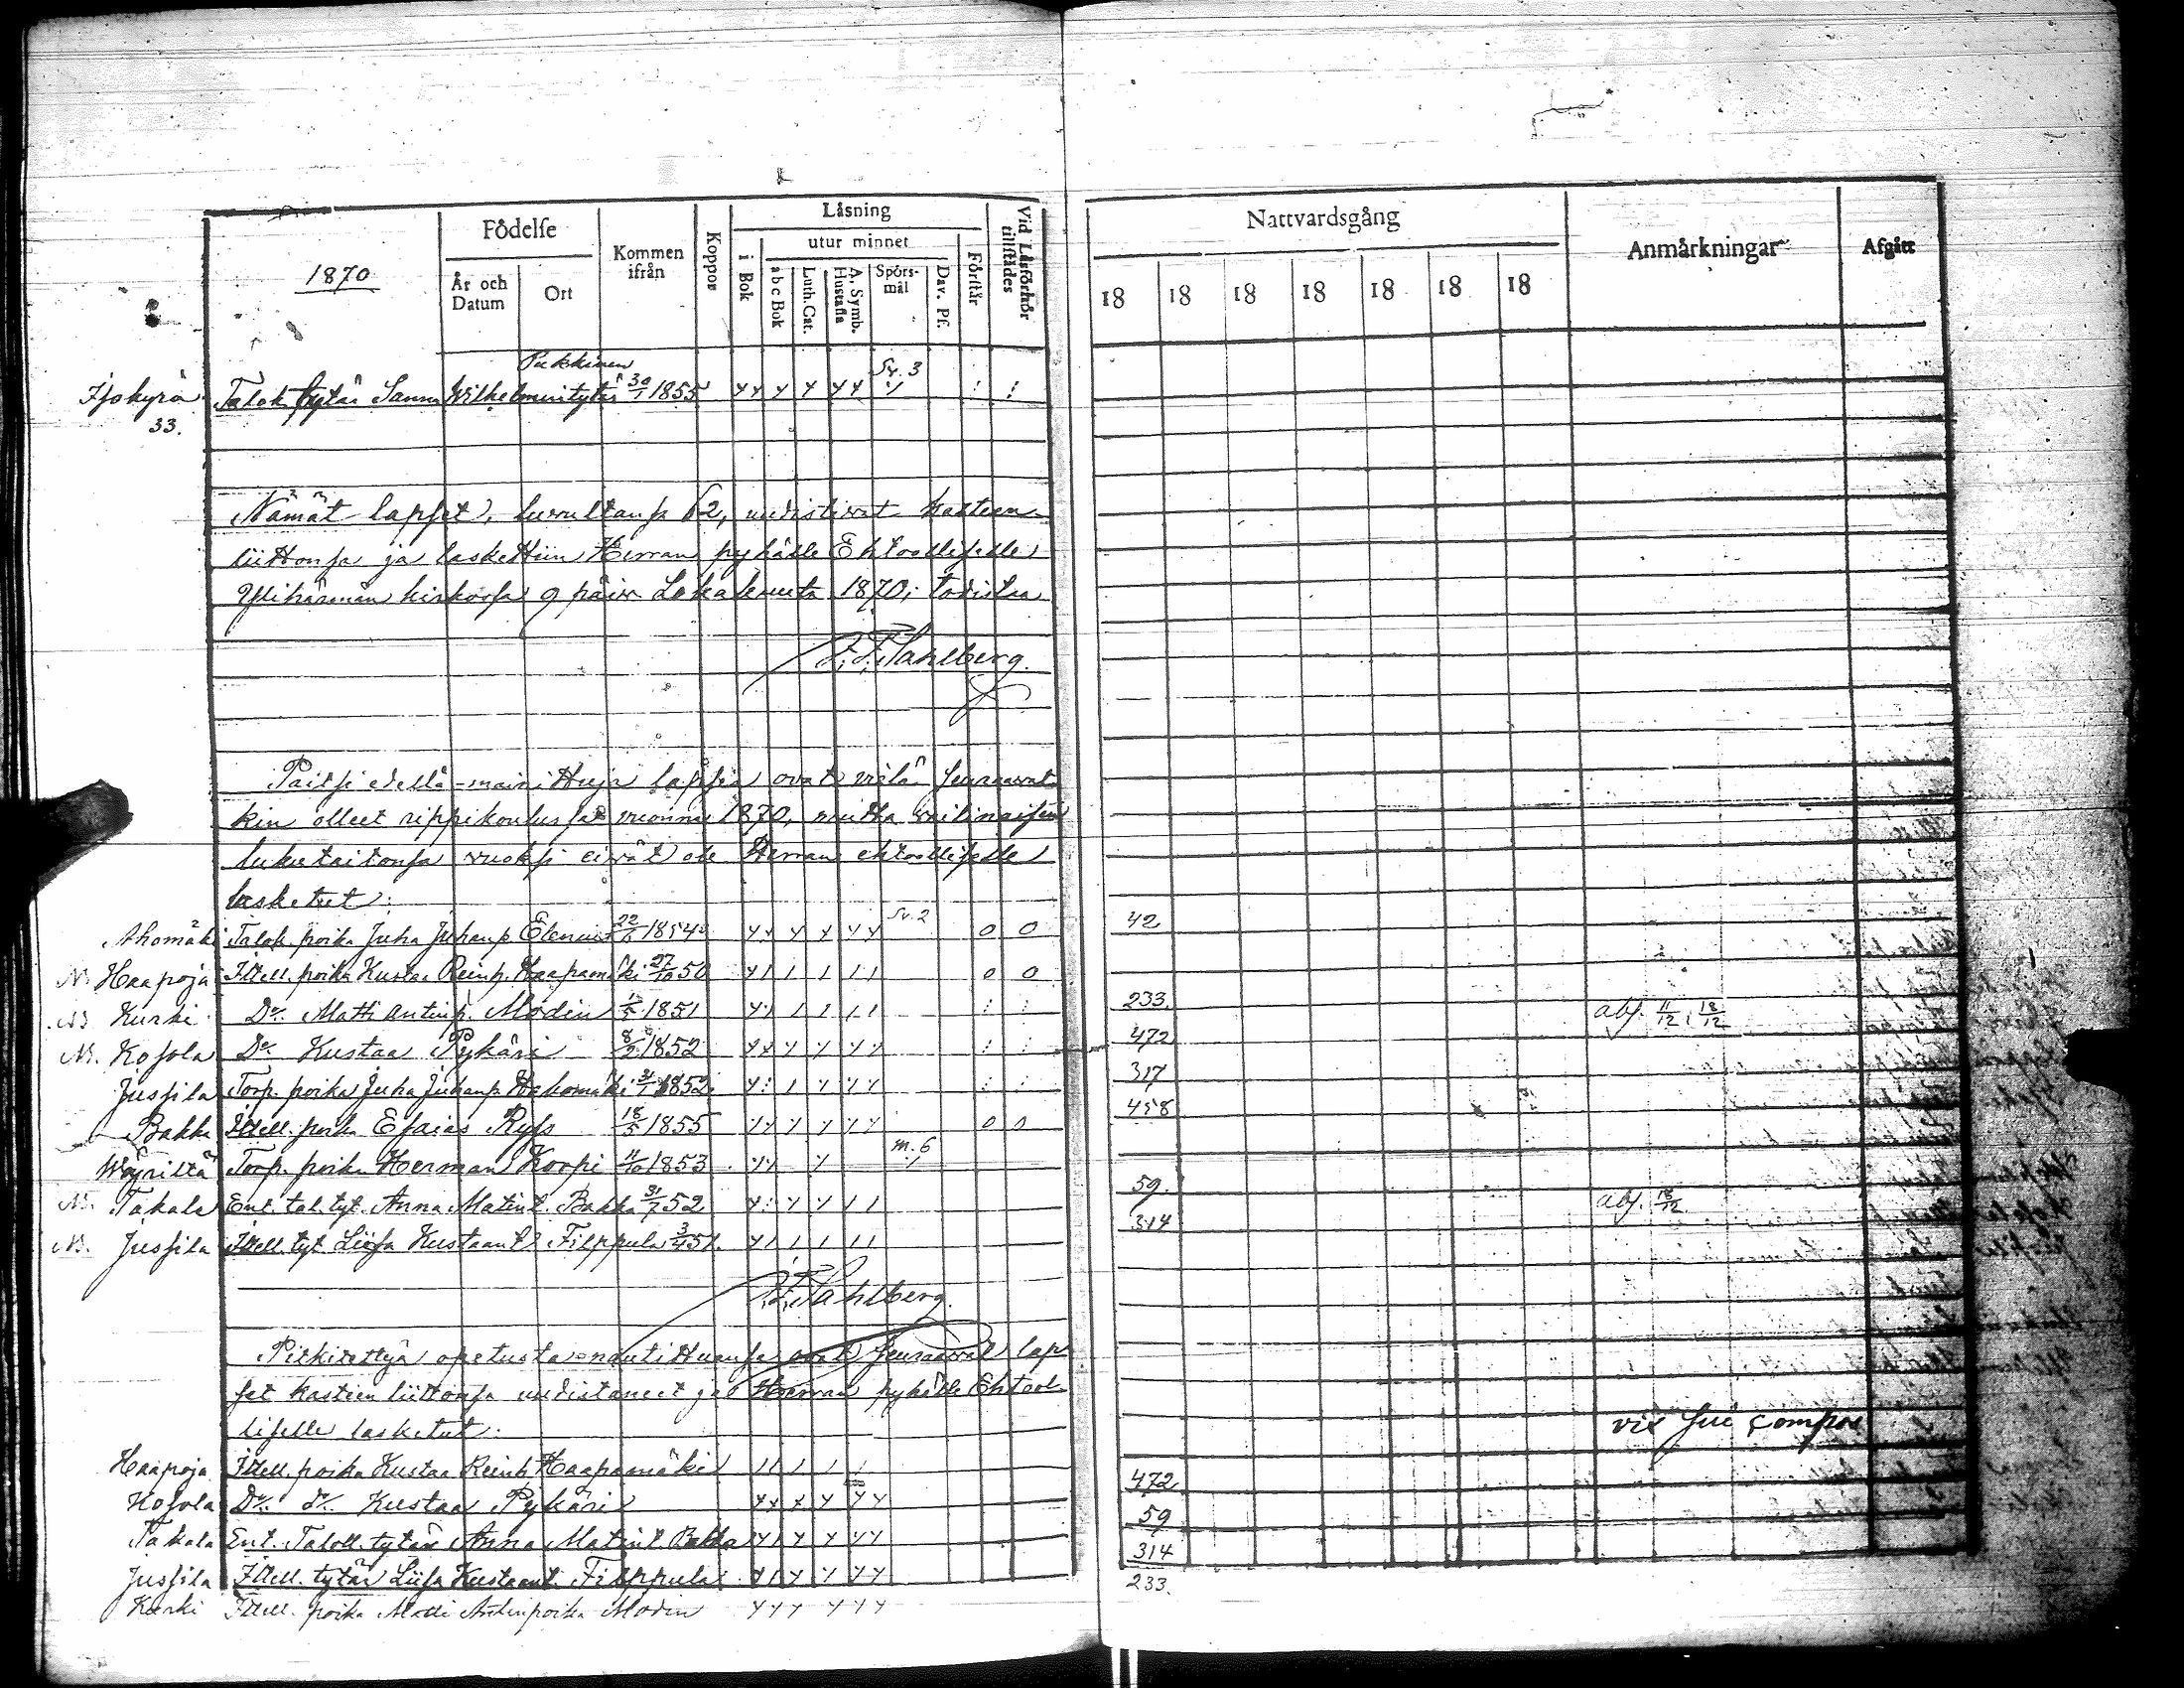 Födelse
Kommen ifrån
Koppor
Läsning
utur minnet
Vid Läsförhör tillstädes
1870
År och Datum
Ort
i Bok
abc Bok
Luth. Cat.
A. Symb. Hustafla
Spörs-mål
Dav. Ps.
Förstår
Nattvardsgång
Anmärkningar
Afgått
18 18 18 18 18 18 18
Pukkinen
Sv. 3
Isokyrö Talok. tytär Sanna Wilhelmintytär 30/1 1855
33.
Nämät lapset, luvultansa 62, uudistivat kasteen
liittonsa ja laskettiin Herran pyhälle Ehtoolliselle
Ylihärmän kirkossa 9 päiv Lokakuuta 1870; todistaa
Stahlberg.
Paitsi edellä-mainittuja lapsia ovat vielä seuraavat
kin olleet rippikoulussa vuonna 1870, mutta vaillinaisen
lukutaitonsa vuoksi eivät ole Herran ehtoolliselle
lasketut:
Sv. 2
Ahomäki Talok. poika Juha Juhanp. Elenius 22/6 1854 42
N. Haapoja Itsell. poika Kustaa Reinh. Haapamäki 27/10 50
N Kurki Do. Matti Antinp. Modin 1/5 1851 233. abs. 11/12, 18/12
N. Kosola Do. Kustaa Pykäri 8/2 1852 472
Jussila Torp. poika Juha Juhanp. Hahomäki 31/1 1852 317
Bakka Itsell. poika Esaias Ryss 18/5 1855 458
Wöyriltä Torp. poika Herman Korpi 11/10 1853 m. 6
N. Takala Ent. tal. tyt. Anna Matint. Bakka 31/7 52 59. abs. 18/12
N. Jussila Itsell. tyt. Liisa Kustaant. Filppula 3/4 51. 314
Stahlberg.
Pitkitettyä opetusta nautittuansa ovat seuraavat lap
set kasteen liittonsa uudistaneet ja Herran pyhälle Ehtool
liselle lasketut:
Haapoja Itsell. poika Kustaa Reinh. Haapamäki vix sui compos
Kosola Do. do. Kustaa Pykäri 472
Takala Ent. Taloll. tytär Anna Matint. Bakka 59
Jussila Itsell. tytär Liisa Kustaant. Filppula 314
Kurki Itsell. poika Matti Antinpoika Modin 233.